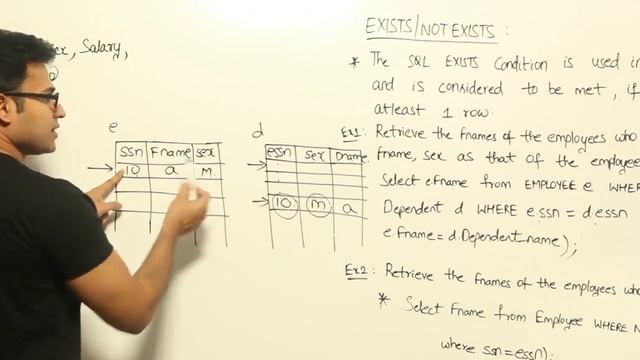 sex, Salary,
e
ssn Fname sex
10 a M
d
essn sex Dname
10 m a
EXISTS/NOT EXISTS :
* The SQL EXISTS Condition is used in
and is considered to be met, if
atleast 1 row.
Ex1: Retrieve the fnames of the employees who
fname, sex as that of the employee
Select e.Fname from EMPLOYEE e WHERE
Dependent d WHERE e.ssn = d.essn
e.Fname = d.Dependent_name);
Ex2: Retrieve the fnames of the employees who
* Select Fname from Employee WHERE N
where ssn=essn);